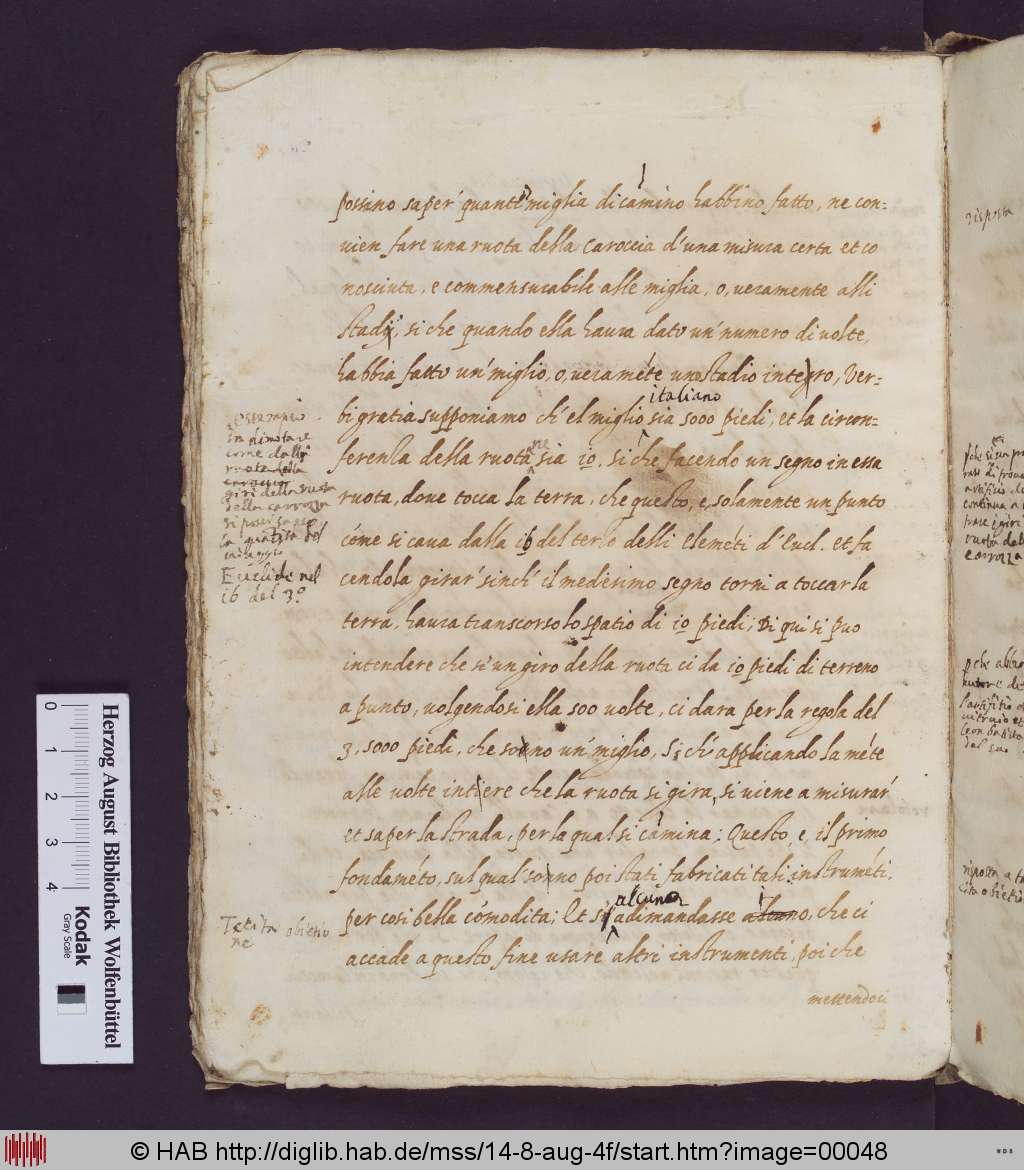 possino saper' quanti miglia di camino habbino fatto, ne con=
uien fare una ruota della caroccia d'una misura certa et co
nosciuta, e commensurabile alle miglia, o, ueramente alli
stadij, si che quando ella haura dato un' numero di uolte,
habbia fatto un' miglio, o, ueraméte uno stadio integro, Ver=
italiano
bi gratia supponiamo ch' el miglio sia 5000 piedi, et la circon=
ferenza della ruota ne sia io. si che facendo un segno in essa
ruota, doue tocca la terra, che questo, e, solamente un punto
cóme si caua dalla i6 del terzo delli Elemèti d' Eucl. et fa
cendola girar' sinch' il medesimo segno torni a toccar la
terra, haura transcorso lo spatio di io piedi; Di qui si puo
intendere che si un giro della ruota ci da io piedi di terreno
a punto, uolgendosi ella 500 uolte, ci dara per la regola del
3, 5000 piedi, che sonno un' miglio, Si ch' applicando la méte
alle uolte intiere che la ruota si gira, si uiene a misurar'
et saper la strada, per la qual si camina: Questo, e, il primo
fondaméto, sul qual' sonno poi stati fabricati tali instruméti,
alcuno
per cosi bella cómodita; Et si adimandasse alcuno, che ci
accade a questo fine usare altri instrumenti, poi che
mettendoci
come dalli
ruote della
giri della ruota
della carrozza
si possi sapere
la quantita del
uiaggio
Euclide nel
i6 del 3º
Tacita obietio
ne
risposta
continua
carrozza
risposta a ta
cita obietio
0 1 2 3 4
Kodak
Gray Scale
Herzog August Bibliothek Wolfenbüttel
© HAB http://diglib.hab.de/mss/14-8-aug-4f/start.htm?image=00048